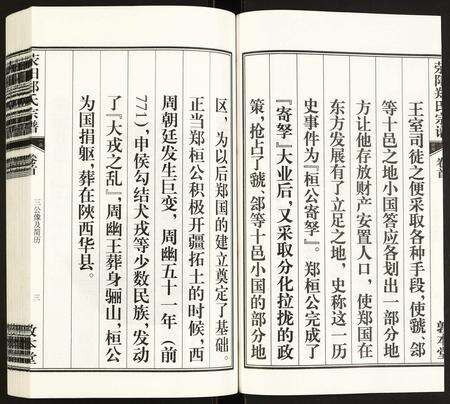 荥阳郑氏宗谱
卷首
王室司徒之便采取各种手段，使虢、郐
等十邑之地小国答应各划出一部分地
方让他存放财产安置人口，使郑国在
东方发展有了立足之地，史称这一历
史事件为『桓公寄孥』。郑桓公完成了
『寄孥』大业后，又采取分化拉拢的政
策，抢占了虢、郐等十邑小国的部分地
敦本堂
区，为以后郑国的建立奠定了基础。
正当郑桓公积极开疆拓土的时候，西
周朝廷发生巨变，周幽五十一年（前
771），申侯勾结犬戎等少数民族，发动
了『犬戎之乱』，周幽王葬身骊山，桓公
为国捐躯，葬在陕西华县。
卷首
三公像及简历
三
敦本堂